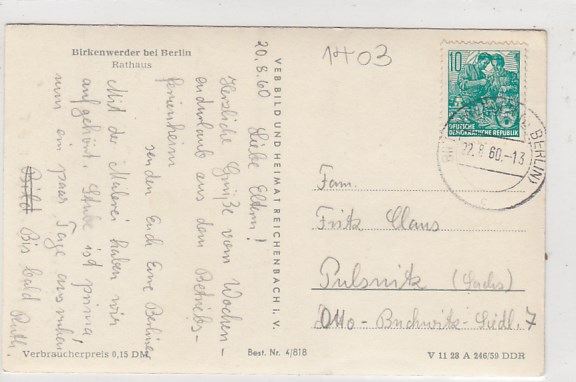 Birkenwerder bei Berlin
Rathaus
20.8.60
Liebe Eltern!
Herzliche Grüße vom Wochen-
endurlaub aus dem Betriebs-
ferienheim
senden Euch Eure Berliner
Mit der Malerei haben wir
aufgehört. Stube ist prima!
nun ein paar Tage ausruhen
Bis bald
Ruth.
VEB BILD UND HEIMAT REICHENBACH I. V.
1403
10
DEUTSCHE
DEMOKRATISCHE REPUBLIK
BERLIN
22.8.60.-13
c
Fam.
Fritz Claus
Pulsnitz (Sachs)
Otto-Buchwitz-Siedl. 7
Verbraucherpreis 0,15 DM
Best. Nr. 4/818
V 11 28 A 246/59 DDR